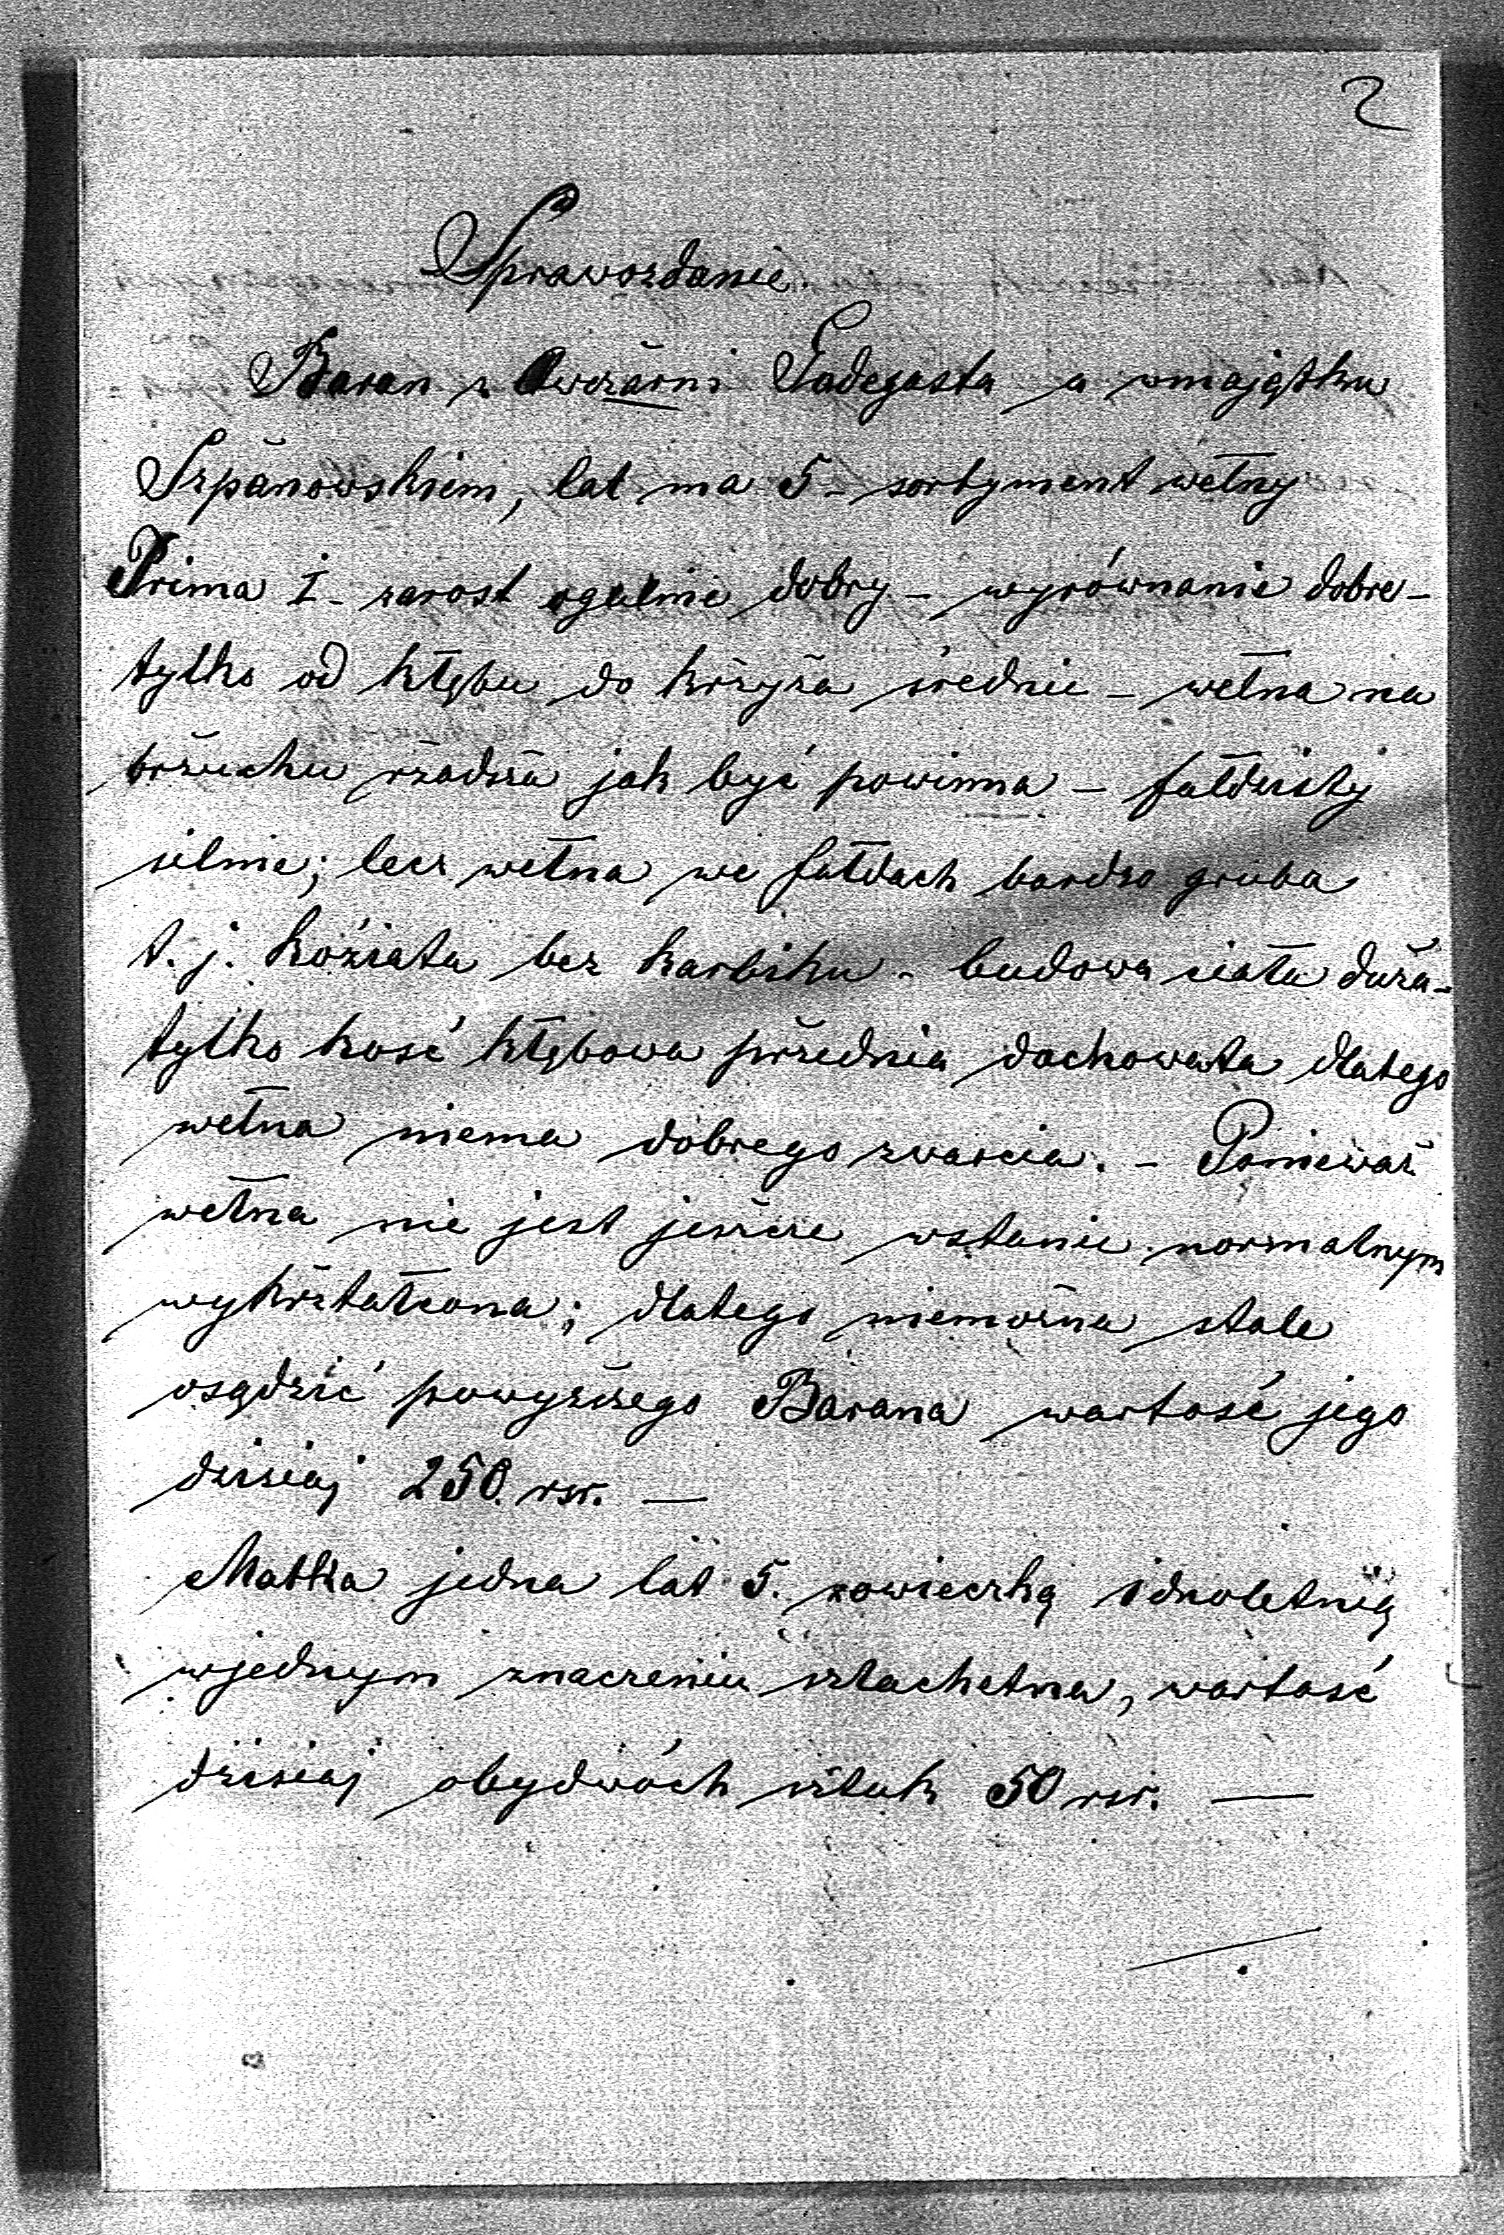 2
Sprawozdanie.
Baran z Owczarni Gadegasta a wmajątku
Szpanowskiem, lat ma 5 - sortyment wełny
Prima I - zarost ogulnie dobry - wyrównanie dobre -
tylko od kłębu do krzyża średnie - wełna na
brzuchu rzadsza jak być powinna - fałdzisty
silnie; lecz wełna we fałdach bardzo gruba
t. j. koźiata bez karbiku - budowa ciała duża -
tylko kość kłębowa przednia dachowata dlatego
wełna niema dobrego zwarcia. - Ponieważ
wełna nie jest jeszcze wstanie normalnym
wykształcona; dlatego niemożna stale
osądzić powyższego Barana wartość jego
dzisiaj 250. rsr. —
Matka jedna lat 5. zowieczką 1dnoletnią
wjednym znaczeniu szlachetna, wartość
dzisiaj obydwóch sztuk 50 rsr. —